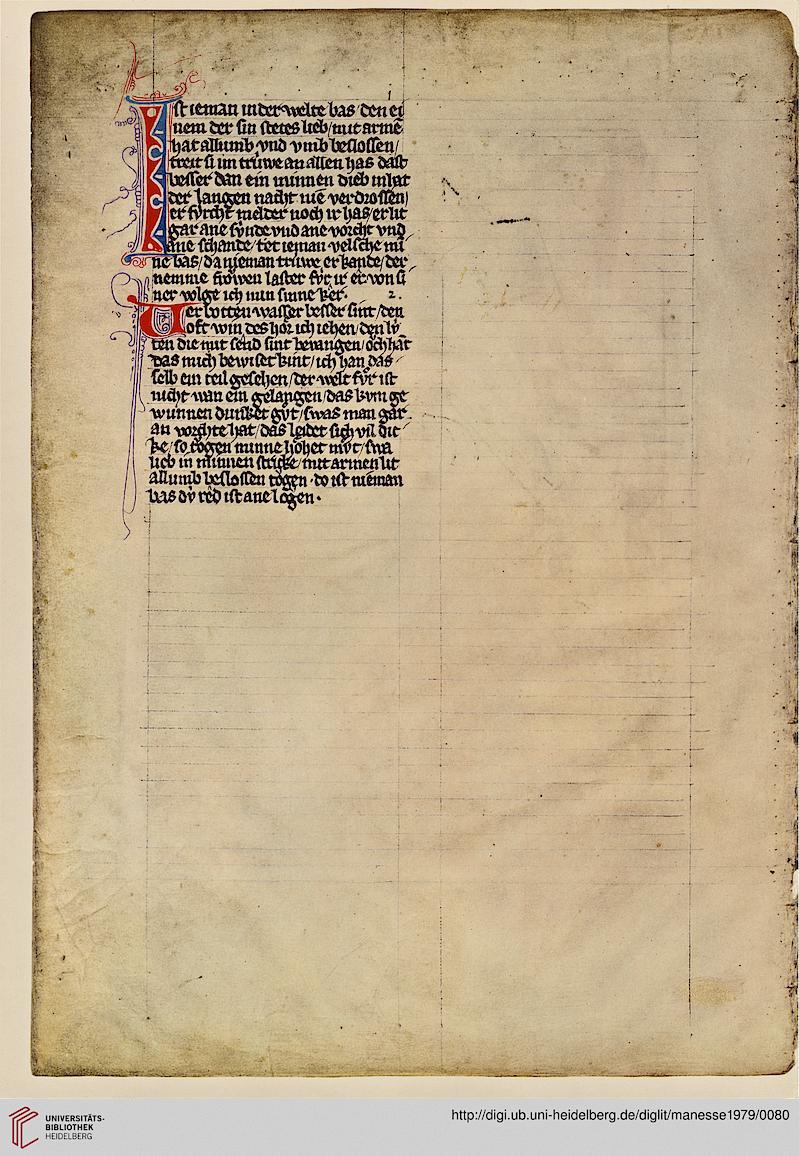 1
Ist ieman in der welte bas den ei
nem der sin stetes lieb/mit arme
hat allumb vnd vmb beslossen/
treit si im trúwe an allen has dast
besser dan ein minnen dieb in hat
der langen nacht nie verdrossen/
er fv́rcht melder noch ir has/er lit
gar ane sv́nde vnd ane vorcht vnd
ane schande/tet ieman velsche mi
ne bas/da nieman trúwe erkande/der
nemme frowen laster fv́r ir er von si
ner volge ich min sinne ker.
2.
Uerbotten wasser besser sint/den
oft win des hör ich iehen/den lv́
ten die mit send sint bevangen/öch hat
das mich bewiset kint/ich han das
selb ein teil gesehen/der welt fv́r ist
nicht wan ein gelangen/das kvm ge
wunnen dunket gvͦt/swas man gar
an vorchte hat/das leidet sich vil dic
ke/so togen minne höhet mvͦt/swa
lieb in minnen stricke/mit armen lit
allumb beslossen togen. do ist nieman
bas dv́ red ist ane logen.
UNIVERSITÄTS-
BIBLIOTHEK
HEIDELBERG
http://digi.ub.uni-heidelberg.de/diglit/manesse1979/0080